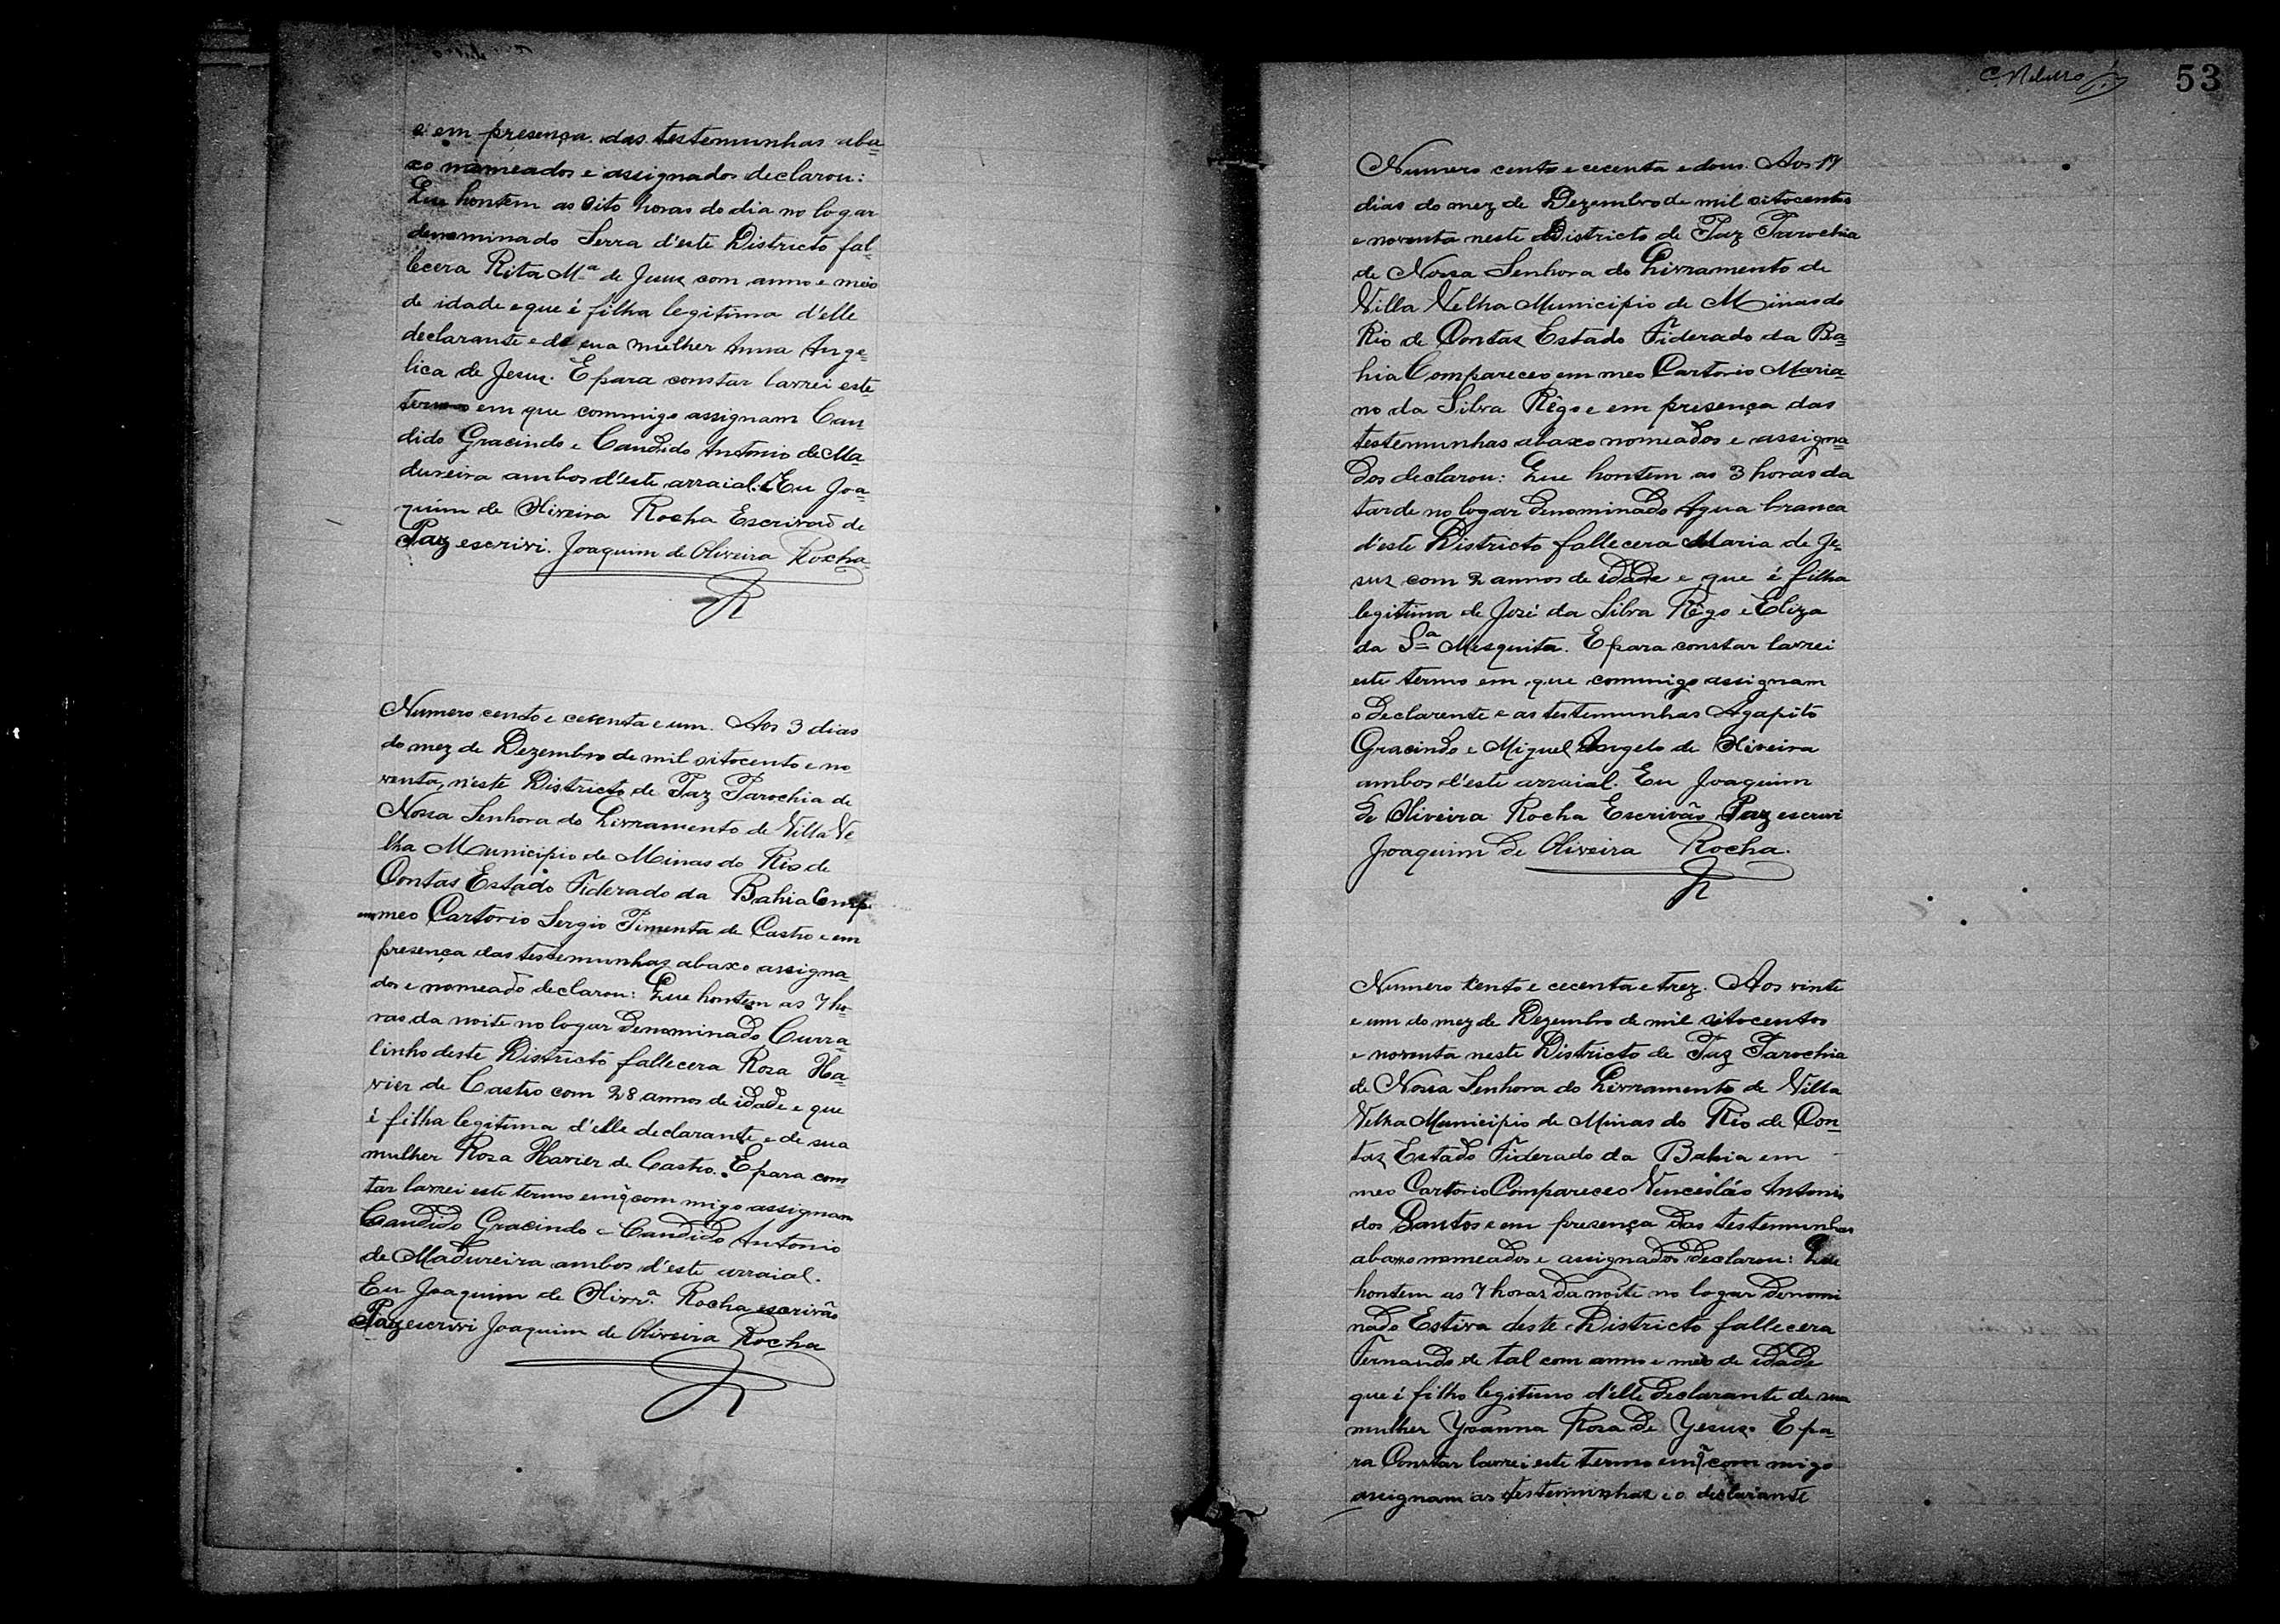 e em presença das testemunhas aba=
xo nomeados e assignados declarou:
Que hontem as oito horas do dia no logar
denominado Serra d'este Districto fal=
lecera Rita Mª de Jesus com anno e meio
de idade e que é filha legitima d'elle
declarante e de sua mulher Anna Ange=
lica de Jesus. E para constar lavrei este
termo em que commigo assignam Can=
dido Gracindo e Candido Antonio de Ma=
dureira ambos d'este arraial. Eu Joa=
quim de Oliveira Rocha Escrivão de
Paz escrivi. Joaquim de Oliveira Rocha
Numero cento e cecenta e um. Aos 3 dias
do mez de Dezembro de mil oitocento e no
venta, n'este Districto de Paz Parochia de
Nossa Senhora do Livramento de Villa Ve
lha Municipio de Minas do Rio de
Contas Estado Fiderado da Bahia Comp.
em meo Cartorio Sergio Pimenta de Castro e em
presença das testemunhas abaxo assigna=
dos e nomeado declarou: Que hontem as 7 ho=
ras da noite no logar denominado Curra=
linho deste Districto fallecera Rosa Xa=
vier de Castro com 28 annos de idade e que
é filha legitima d'elle declarante e de sua
mulher Rosa Xavier de Castro. E para cons=
tar lavrei este termo em q̃ com migo assignam
Candido Gracindo e Candido Antonio
de Madureira ambos d'este arraial.
Eu Joaquim de Olivrª Rocha escrivão
Paz escrivi Joaquim de Oliveira Rocha
53
Numero cento e cecenta e dous. Aos 17
dias do mez de Dezembro de mil oitocentos
e noventa neste Districto de Paz Parochia
de Nossa Senhora do Livramento de
Villa Velha Municipio de Minas do
Rio de Contas Estado Fiderado da Ba=
hia Compareceo em meo Cartorio Maria=
no da Silva Rêgo e em presença das
testemunhas abaxo nomeados e assigna=
dos declarou: Que hontem as 3 horas da
tarde no logar denominado Agua branca
d'este Districto fallecera Maria de Je=
sus com 2 annos de idade e que é filha
legitima de José da Silva Rêgo e Eliza
da Sª Mesquita. E para constar lavrei
este termo em que commigo assignam
o declarente e as testemunhas Agapito
Gracindo e Miguel Angelo de Oliveira
ambos d'este arraial. Eu Joaquim
de Oliveira Rocha Escrivão Paz escrivi
Joaquim de Oliveira Rocha.
Numero cento e cecenta e trez. Aos vinte
e um do mez de Dezembro de mil oitocentos
e noventa neste Districto de Paz Parochia
de Nossa Senhora do Livramento de Villa
Velha Municipio de Minas do Rio de Con=
tas Estado Fiderado da Bahia em
meo Cartorio Compareceo Venceslão Antonio
dos Santos e em presença das testemunhas
abaxo nomeados e assignados declarou: Que
hontem as 7 horas da noite no logar denomi
nado Estiva deste Districto fallecera
Fernando de tal com anno e meio de idade
que é filho legitimo d'elle declarante de sua
mulher Yoanna Rosa de Yesus. E pa=
ra Constar lavrei este termo em q̃ com migo
assignam as testemunhas e o declarante